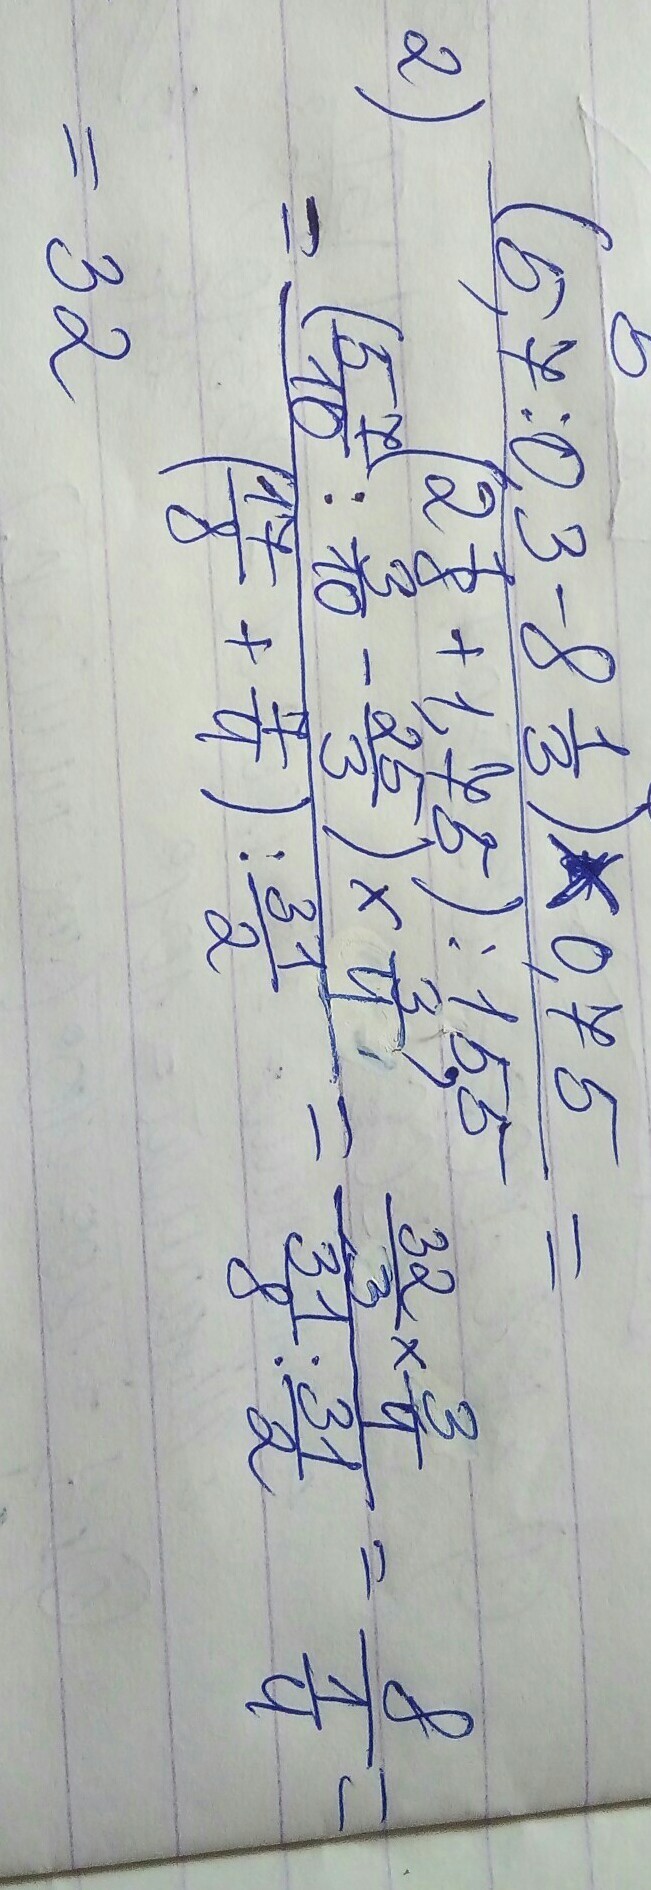 2) (5,7:0,3-8 1/3)×0,75 / (2 1/8+1,75):15,5 =
= (5 7/10 : 3/10 - 25/3) × 3/4 / (17/8 + 7/4) : 31/2 = 32/3 × 3/4 / 31/8 : 31/2 = 8 / 1/4 =
= 32